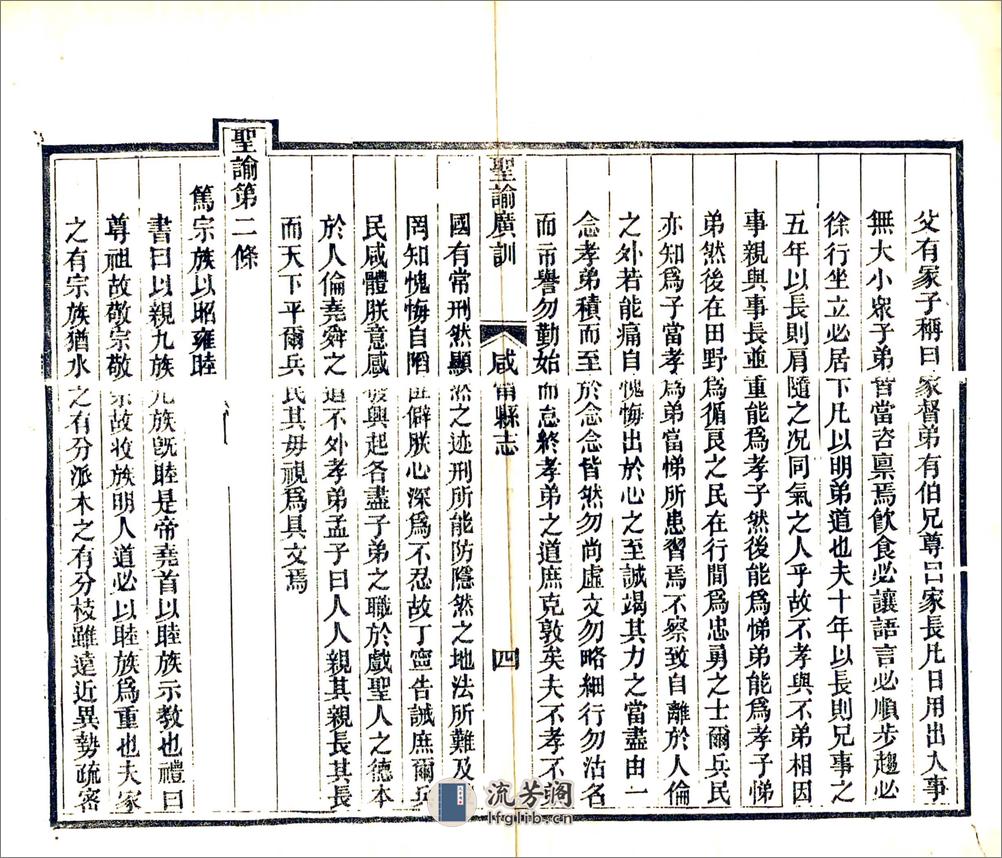 父有冢子稱曰家督弟有伯兄尊曰家長凡日用出入事
無大小眾子弟皆當咨稟焉飲食必讓語言必順步趨必
徐行坐立必居下凡以明弟道也夫十年以長則兄事之
五年以長則肩隨之况同氣之人乎故不孝與不弟相因
事親與事長並重能為孝子然後能為悌弟能為孝子悌
弟然後在田野為循良之民在行間為忠勇之士爾兵民
亦知為子當孝為弟當悌所患習焉不察致自離於人倫
之外若能痛自愧悔出於心之至誠竭其力之當盡由一
念孝弟積而至於念念皆然勿尚虛文勿略細行勿沽名
而市譽勿勤始而怠終孝弟之道庶克敦矣夫不孝不
聖諭廣訓
咸甯縣志
四
國有常刑然顯然之迹刑所能防隱然之地法所難及
罔知愧悔自陷匪僻朕心深為不忍故丁寧告誡庶爾兵
民咸體朕意感發興起各盡子弟之職於戲聖人之德本
於人倫堯舜之道不外孝弟孟子曰人人親其親長其長
而天下平爾兵民其毋視為具文焉
聖諭第二條
篤宗族以昭雍睦
書曰以親九族九族旣睦是帝堯首以睦族示教也禮曰
尊祖故敬宗敬宗故收族明人道必以睦族為重也夫家
之有宗族猶水之有分派木之有分枝雖遠近異勢疏密
流芳閣
lfglib.cn